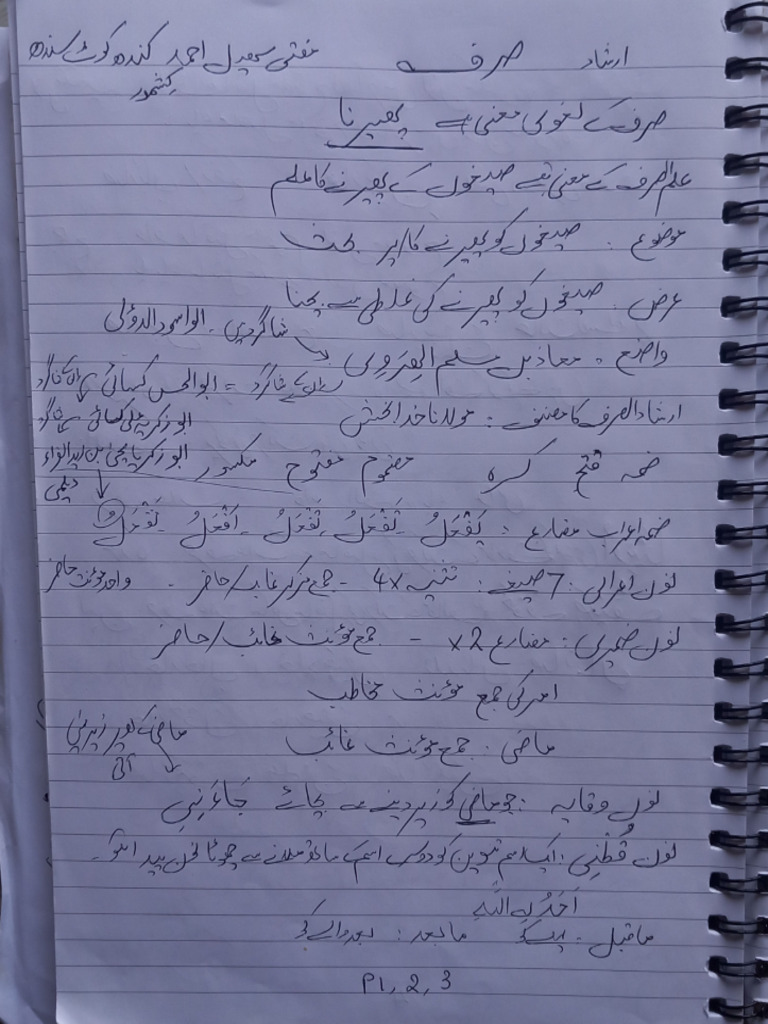 ارشاد صرف
مفتی سھیل احمد کندھ کوٹ سندھ
کشمور
صرف کے لغوی معنی ہے پھیرنا
علم الصرف کے معنی ہے صیغوں کے پھیرنے کا علم
موضوع : صیغوں کو پھیرنے کا پر بحث
غرض : صیغوں کو پھیرنے کی غلطی سے بچنا
شاگرد ہیں ۔ ابو اسود الدؤلی
واضع : معاذ بن مسلم الھروی
ان کے شاگرد = ابو الحسن کسائی
ارشاد الصرف کا مصنف : مولانا خدا بخش
ضمہ فتح کسرہ مضموم مفتوح مکسور
دیلمی
ضمہ اعراب مضارع : يَفْعَلُ تَفْعَلُ تَفْعَلُ ۔ اَفْعَلُ نَفْعَلُ
نون اعرابی : 7 صیغے : تثنیہ 4x ۔ جمع مذکر غائب/حاضر ۔ واحد مؤنث حاضر
نون ضمیری : مضارع x2 ۔ جمع مؤنث غائب/حاضر
امر کی جمع مؤنث مخاطب
ماضی : جمع مؤنث غائب
ماضی کے اوپر زیر نہیں
آتی
نون وقایہ : جو ماضی کو زیر دینے سے بچائے جَاءَنِي
نون قُطْنِی : ایک اسم تنوین کو دوسرے اسم کے ساتھ ملانے سے چھوٹا نون پیدا ہو ۔
اَحَدُ نِ اللّٰهُ
ماقبل : پہلے کو مابعد : بعد والے کو
P1, 2, 3